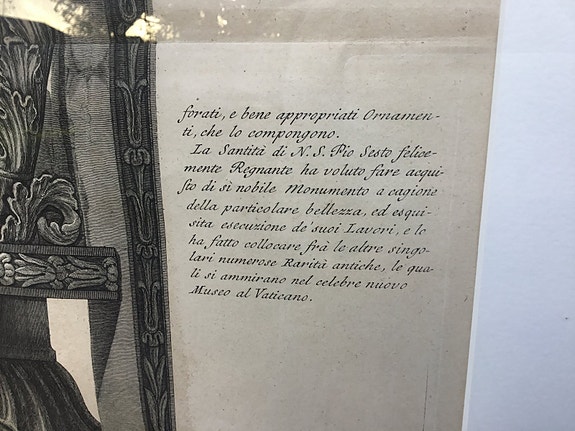 forati, e bene appropriati Ornamen-
ti, che lo compongono.
La Santità di N. S. Pio Sesto felice-
mente Regnante ha voluto fare acqui-
sto di sì nobile Monumento a cagione
della particolare bellezza, ed esqui-
sita esecuzione de' suoi Lavori, e lo
ha fatto collocare frà le altre singo-
lari numerose Rarità antiche, le qua-
li si ammirano nel celebre nuovo
Museo al Vaticano.